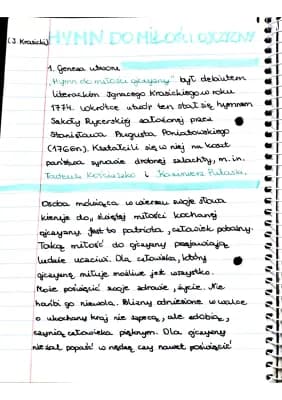 (I. Krasicki) HYMN DO MIŁOŚCI OJCZYZNY
1. Geneza utworu
"Hymn do miłości ojczyzny" był debiutem
literackim Ignacego Krasickiego w roku
1774. Wkrótce utwór ten stał się hymnem
Szkoły Rycerskiej założonej przez
Stanisława Augusta Poniatowskiego
(1766r.). Kształcili się w niej na koszt
państwa synowie drobnej szlachty, m.in.
Tadeusz Kościuszko i Kazimierz Pułaski.
Osoba mówiąca w wierszu swoje słowa
kieruje do „świętej miłości kochanej
ojczyzny. Jest to patriota, człowiek pobożny.
Taką miłość do ojczyzny przejawiają
ludzie uczciwi. Dla człowieka, który
ojczyznę miłuje możliwe jest wszystko.
Może poświęcić swoje zdrowie, życie. Nie
hańbi go niewola. Blizny odniesione w walce
o ukochany kraj nie szpecą, ale zdobią,
czynią człowieka pięknym. Dla ojczyzny
nie żal popaść w nędzę czy nawet poświęcić